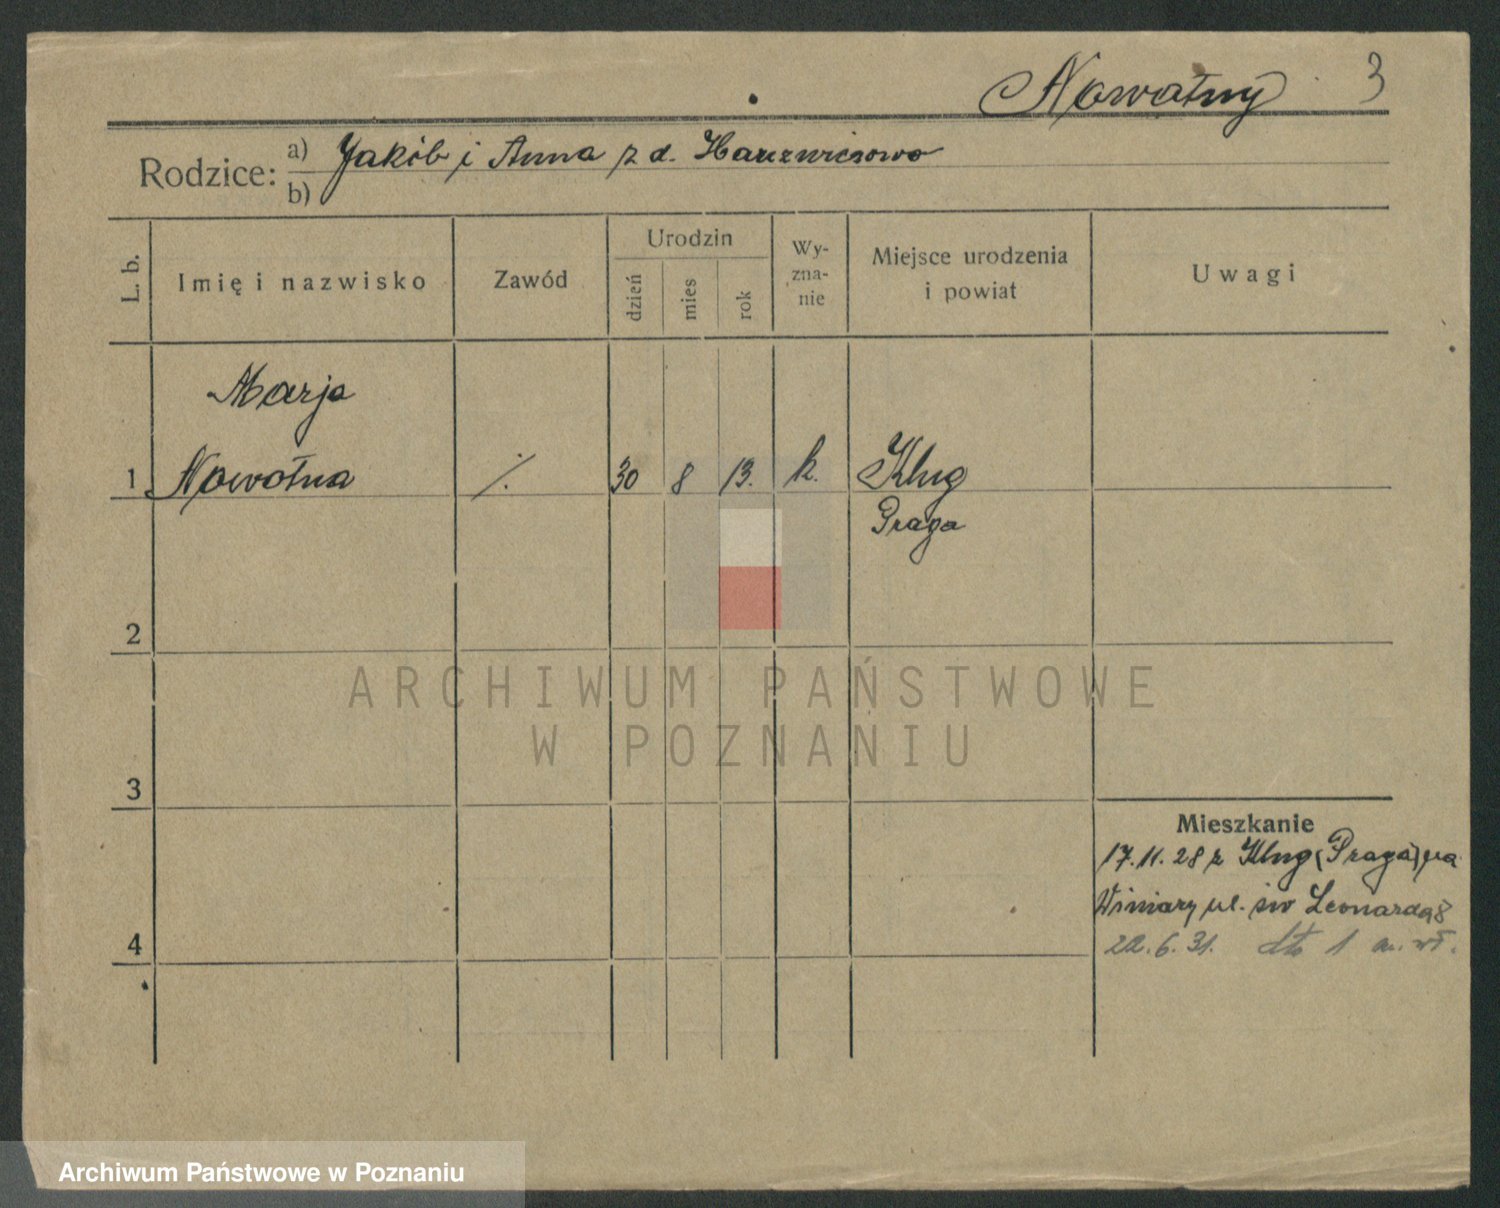 Nowatny 3
Rodzice: a) Jakób i Anna z d.
b)
L. b.
Imię i nazwisko
Zawód
Urodzin
dzień
mies
rok
Wy-
zna-
nie
Miejsce urodzenia
i powiat
Uwagi
Marja
1 Nowotna ./. 30 8 13. k. Klug
Praga
2
ARCHIWUM PAŃSTWOWE
W POZNANIU
3
Mieszkanie
17.11.28 z Klug (Praga) na
Winiary ul. św Leonarda 8
4
22.6.31. dto 1
Archiwum Państwowe w Poznaniu